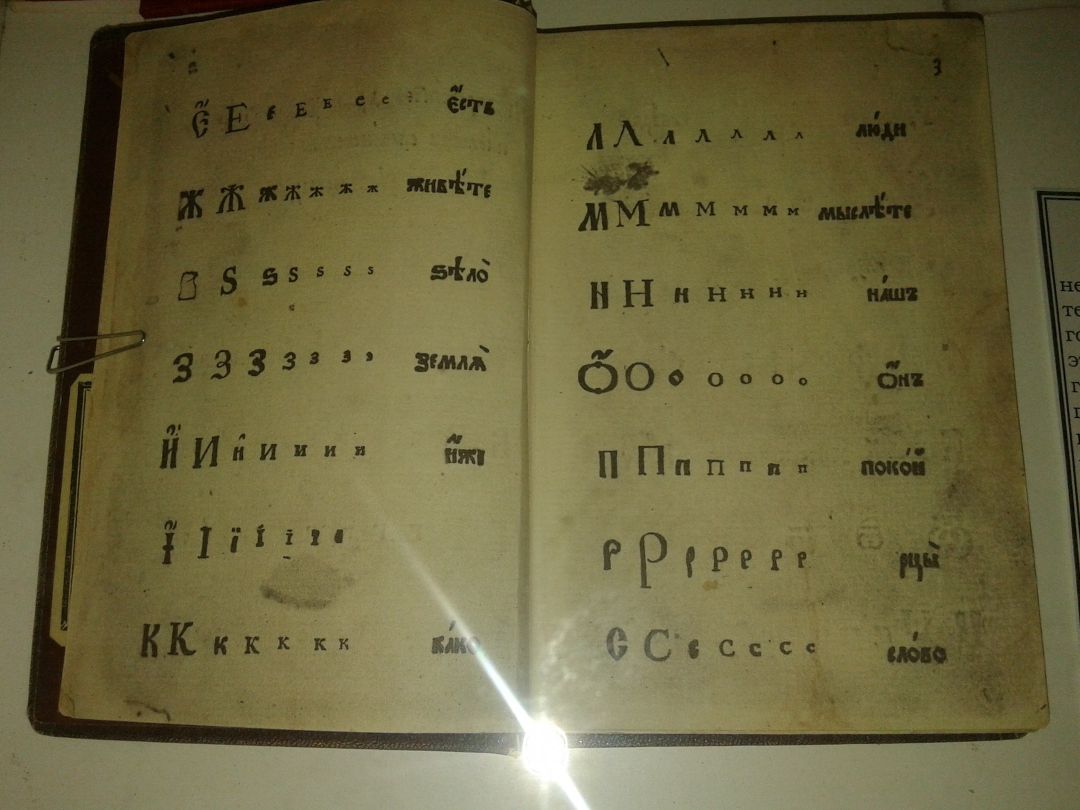 Є Е е Е Е е е є҆́сть
Ж Ж ж Ж ж ж ж живѣ́те
Ѕ ѕ Ѕ ѕ ѕ ѕ ѕѣлѡ̀
З З З З з з з землѧ̀
И И и И и и и и҆́же
І І ї І і і і
К К к К К к к ка́кѡ
3
Л Л л Л л л л лю́ди
М М м М м м м мыслѣ́те
Н Н н Н н н н на́шъ
О О о О о о о ѻ҆́нъ
П П п П п п п поко́й
Р Р р р Р р р р рцы̀
С С с С с с с сло́во
не
те
го
э